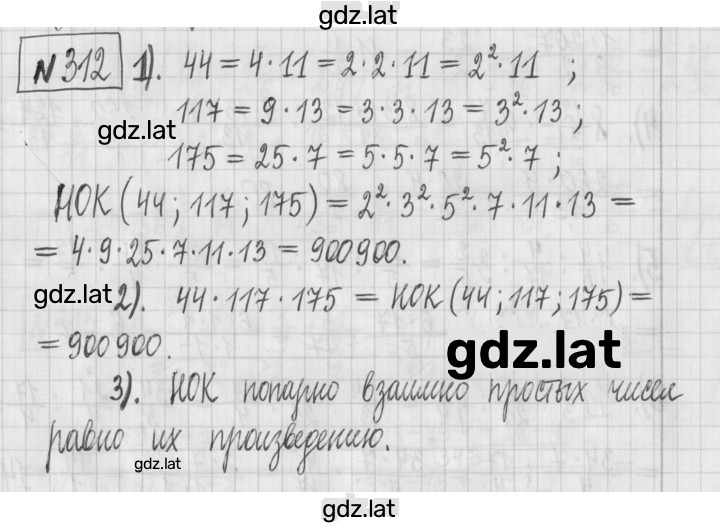 gdz.lat
№312 1). 44 = 4·11 = 2·2·11 = 2²·11 ;
117 = 9·13 = 3·3·13 = 3²·13 ;
gdz.lat
175 = 25·7 = 5·5·7 = 5²·7 ;
НОК (44; 117; 175) = 2²·3²·5²·7·11·13 =
= 4·9·25·7·11·13 = 900900.
gdz.lat 2). 44·117·175 = НОК (44; 117; 175) =
= 900900.
gdz.lat
3). НОК попарно взаимно простых чисел
равно их произведению.
gdz.lat
gdz.lat